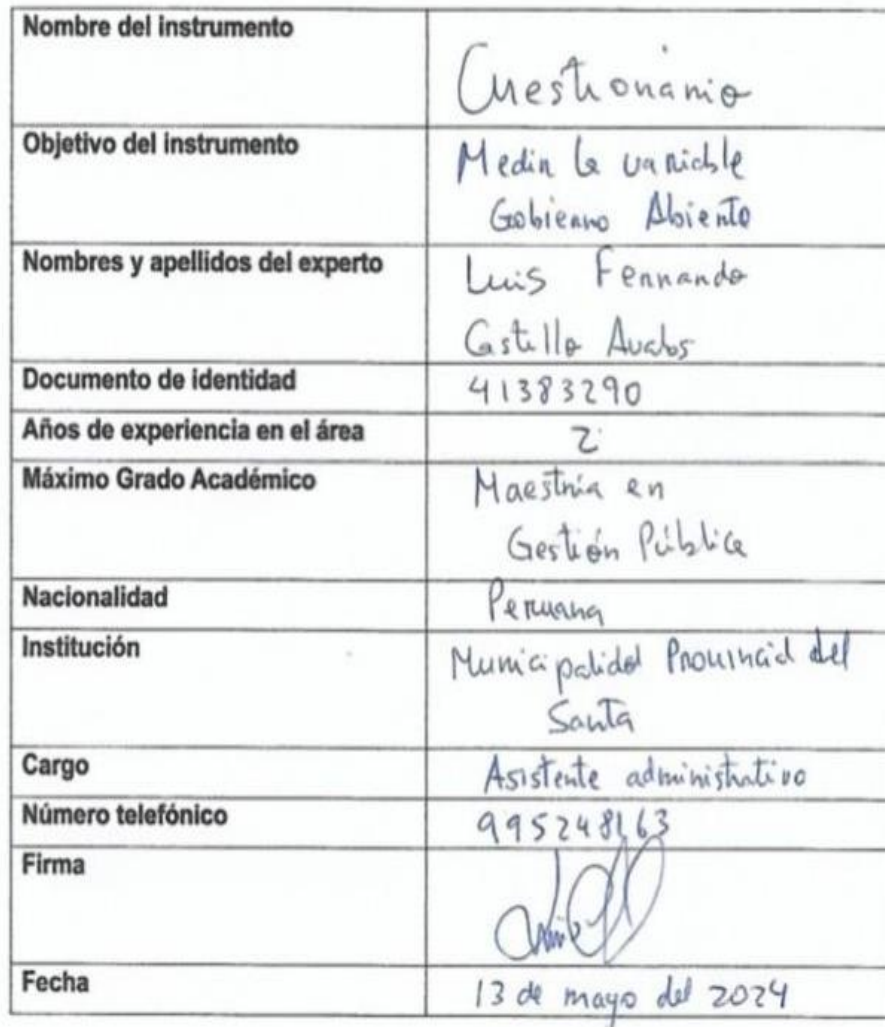 Nombre del instrumento
Cuestionario
Objetivo del instrumento
Medir la variable
Gobierno Abierto
Nombres y apellidos del experto
Luis Fernando
Castillo Avalos
Documento de identidad
41383290
Años de experiencia en el área
2
Máximo Grado Académico
Maestría en
Gestión Pública
Nacionalidad
Peruana
Institución
Municipalidad Provincial del
Santa
Cargo
Asistente administrativo
Número telefónico
995248163
Firma
Fecha
13 de mayo del 2024